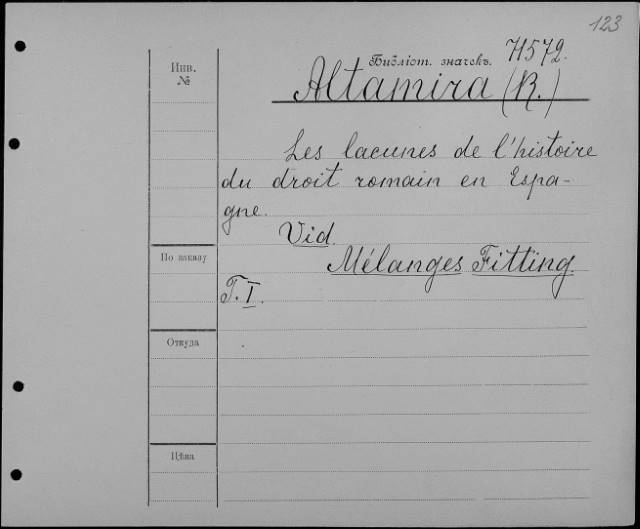 123
Библіот. значекъ. H572.
Инв.
№
Altamira (R.)
Les lacunes de l'histoire
du droit romain en Espa-
gne.
Vid.
По заказу
Mélanges Fitting.
T. I.
Откуда
Цѣна